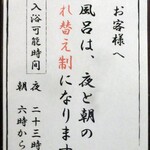 お客様へ
風呂は、夜と朝の
れ替え制になります
入浴可能時間
夜 二十三時
朝 六時から